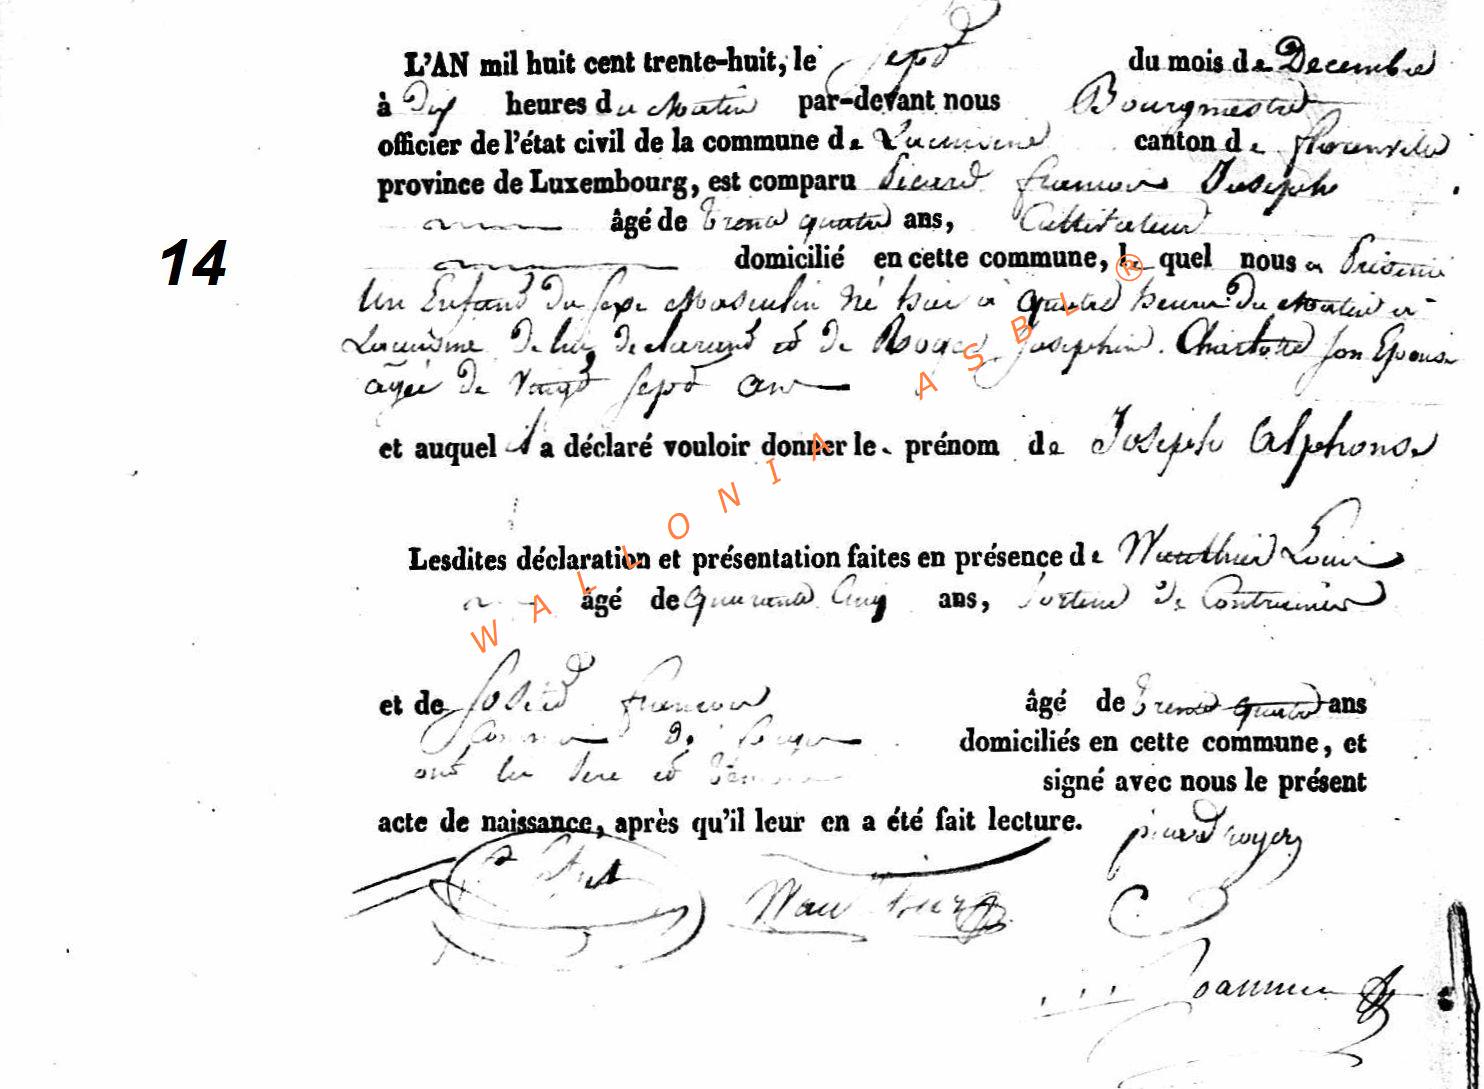 L'AN mil huit cent trente-huit, le Sept du mois de Decembre
à Dix heures du Matin par-devant nous Bourgmestre
officier de l'état civil de la commune de Lacuisine canton de florenville
province de Luxembourg, est comparu Picard francois Joseph
âgé de trente quatre ans, Cultivateur
14
domicilié en cette commune, le quel nous a Présenté
Un Enfant Du Sexe Masculin Né hier à quatre heures Du Matin à
Lacuisine De lui Declarant et De Royer Josephine Charlotte Son Epouse
agée De Vingt Sept ans
et auquel il a déclaré vouloir donner le prénom de Joseph Alphonse
Lesdites déclaration et présentation faites en présence de Wauthier Louis
âgé de quarante Cinq ans, Porteur De Contraintes
et de francois âgé de trente quatre ans
domiciliés en cette commune, et
ont les Pere et Témoins signé avec nous le présent
acte de naissance, après qu'il leur en a été fait lecture.
picard royer
Wauthier
WALLONIA ASBL ®